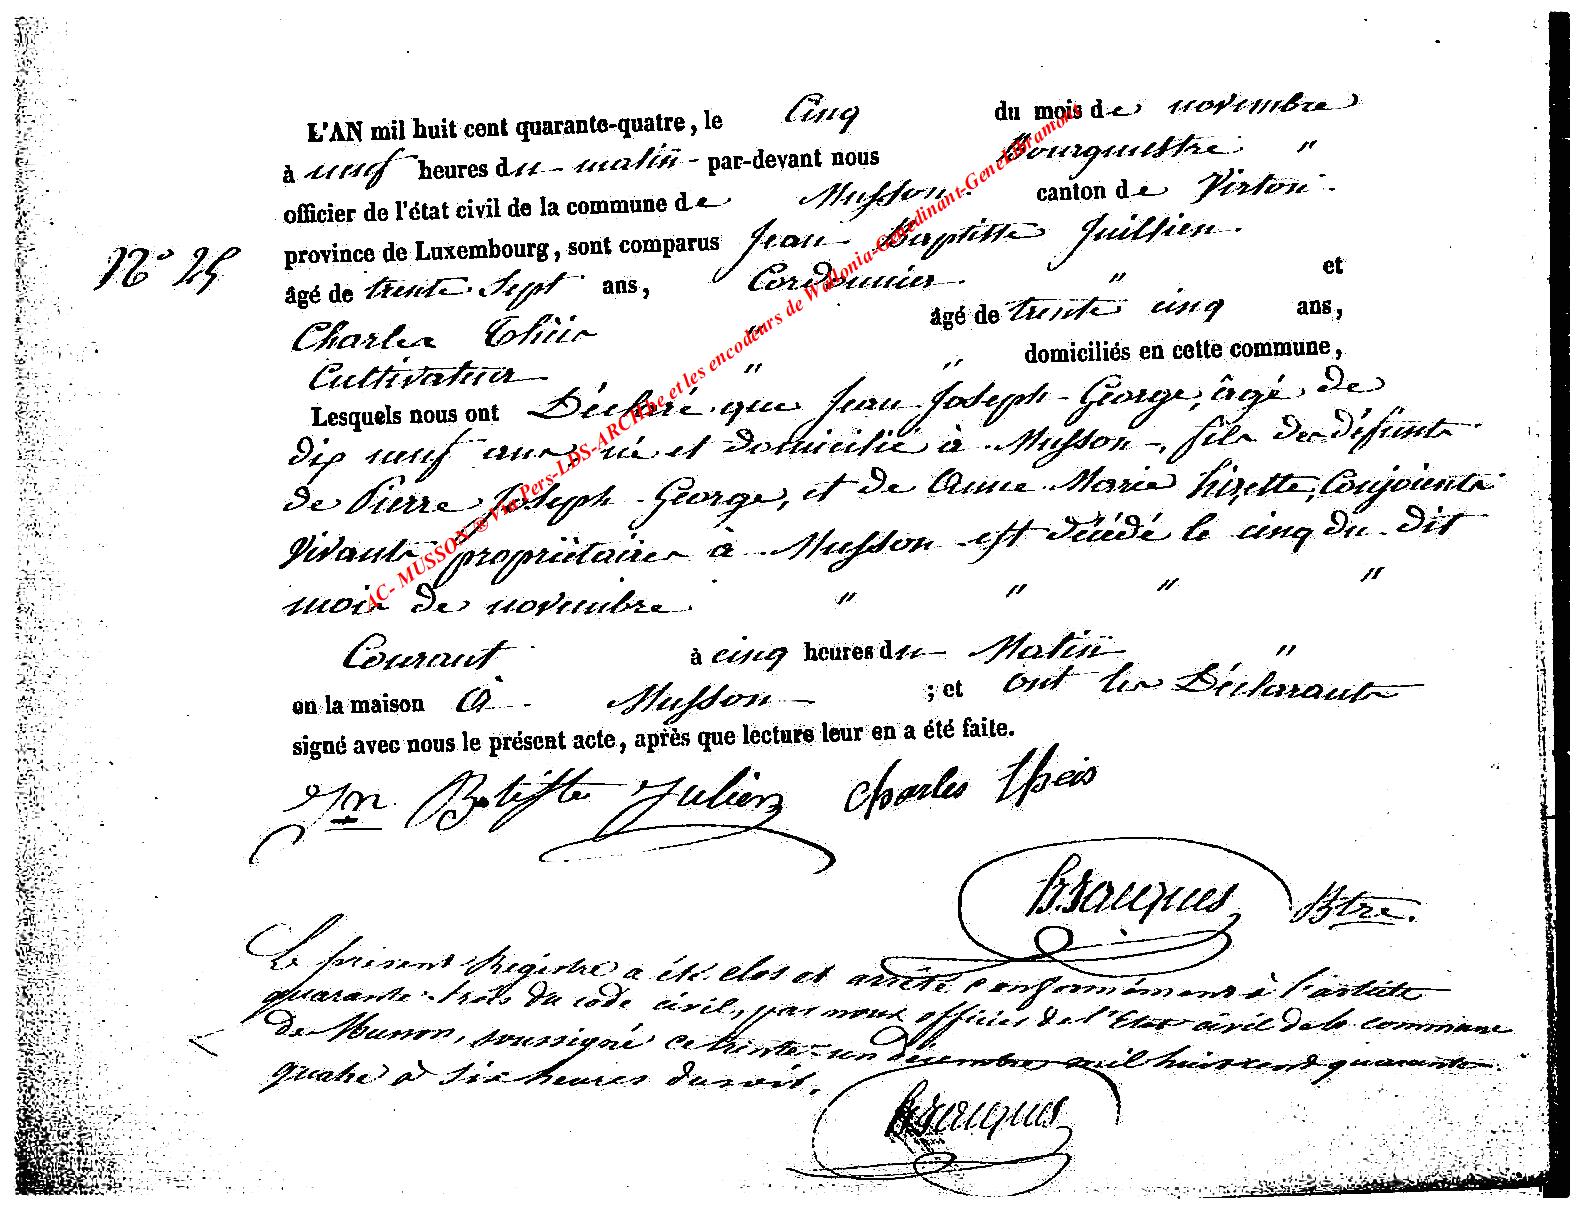 L'AN mil huit cent quarante-quatre, le Cinq du mois de novembre
à neuf heures du matin par-devant nous Bourguestre "
officier de l'état civil de la commune de Musson canton de Virton
province de Luxembourg, sont comparus Jean Baptiste Juillien
N° 25
âgé de trente Sept ans, Cordonnier " et
Charles Thiis " âgé de trente cinq ans,
Cultivateur " " domiciliés en cette commune,
Lesquels nous ont Déclaré que Jean Joseph George, âgé de
dix neuf ans, né et domicilié à Musson, fils des défunts
de Pierre Joseph George, et de Anne Marie Conjoints
Vivants propriétaires à Musson est décédé le cinq du dit
mois de novembre " " " "
Courant à cinq heures du Matin "
en la maison à Musson ; et ont les Déclarants
signé avec nous le présent acte, après que lecture leur en a été faite.
Jn Batiste Julien Charles theis
Btre.
Le présent Registre a été clos et arrêté conformément à l'article
quarante-trois du code civil, par nous officier de l'Etat civil de la commune
de Musson, soussigné ce trente-un décembre mil huit cent quarante
quatre à six heures du soir.
AC- MUSSON @ Via Pers-LDS-ARCH.be et les encodeurs de Wallonia-Genedinant-GeneLibramont